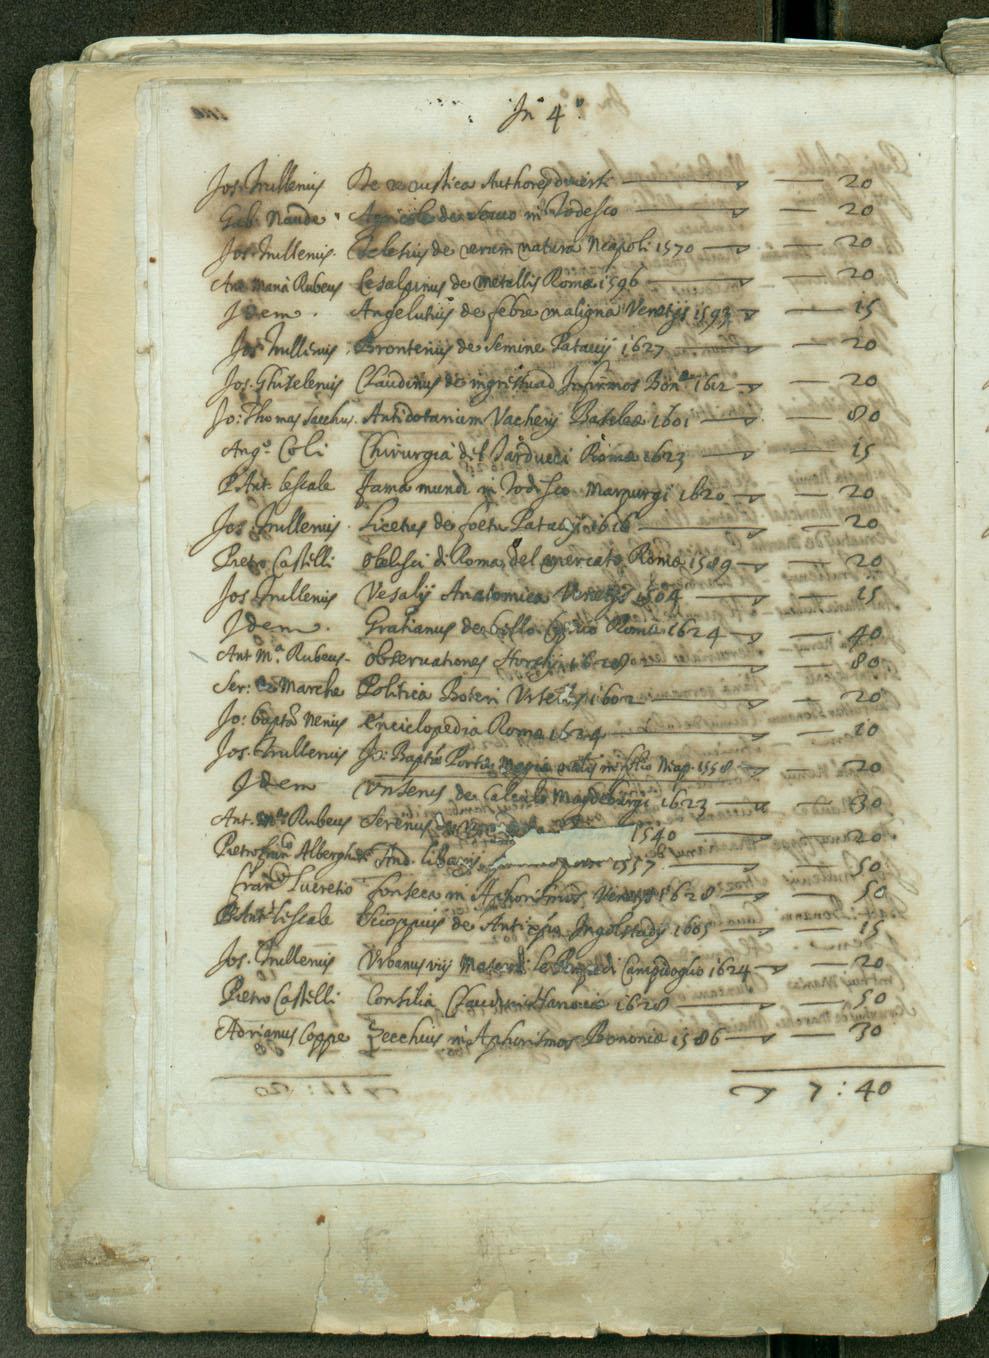 In 4.°
Jos. Trullenus De re rustica Authores diversi — 20
Gab. Naude Agricole de in Todesco — 20
Jos. Trullenus. Telesius de rerum natura Neapoli 1570 — 20
Ant. Maria Rubeus Cesalpinus de Metallis Romæ 1596 — 20
Idem. Angelutius de febre maligna Venetijs 1593 — 15
Jos. Trullenus. Bronterius de Semine Patavij 1627 — 20
Jos. Ghislenius Claudinus de ingressu ad Infirmos Bon.æ 1612 — 20
Jo: Thomas Sacchus. Antidotarium Vacherij Basileæ 1601 — 80
Ang.° Coli Chirurgia del Tarducci Romæ 1623 — 15
P. Ant. Lescale Fama mundi in Todesco Marpurgi 1620 — 20
Jos. Trullenus. Licetus de foetu Patavij 1616 — 20
Pietro Castelli Obelisci di Roma del Mercato Roma 1589 — 20
Jos. Trullenus Vesalij Anatomica Venetijs 1604 — 15
Idem. Gratianus de bello Cyprio Romæ 1624 — 40
Ant. M.ª Rubeus. Observationes Horstij 1628 — 80
Ser: de Marche Politica Boteri 1602 — 20
Jo: Bapt.ª Nenius Enciclopedia Roma 1624 — 10
Jos. Trullenus Jo: Bapt.æ Portæ Magia Neap. 1558 — 20
Idem Unserus de Calculo Magdeburgi 1623 — 30
Ant. M.ª Rubeus Serenus 1540 — 20
Pietro Alberghi libavij 1557 — 50
Fran.co Lucretio Fonseca in Aphorismos Venetijs 1628 — 50
P. Ant. Lescale Scioppius de Ingolstadij 1605 — 15
Jos. Trullenus Urbanus viij di Campidoglio 1624 — 20
Pietro Castelli Consilia Claudini Hanoviæ 1628 — 50
Adrianus Coppe Zecchius in Aphorismos Bononiæ 1586 — 30
7 : 40